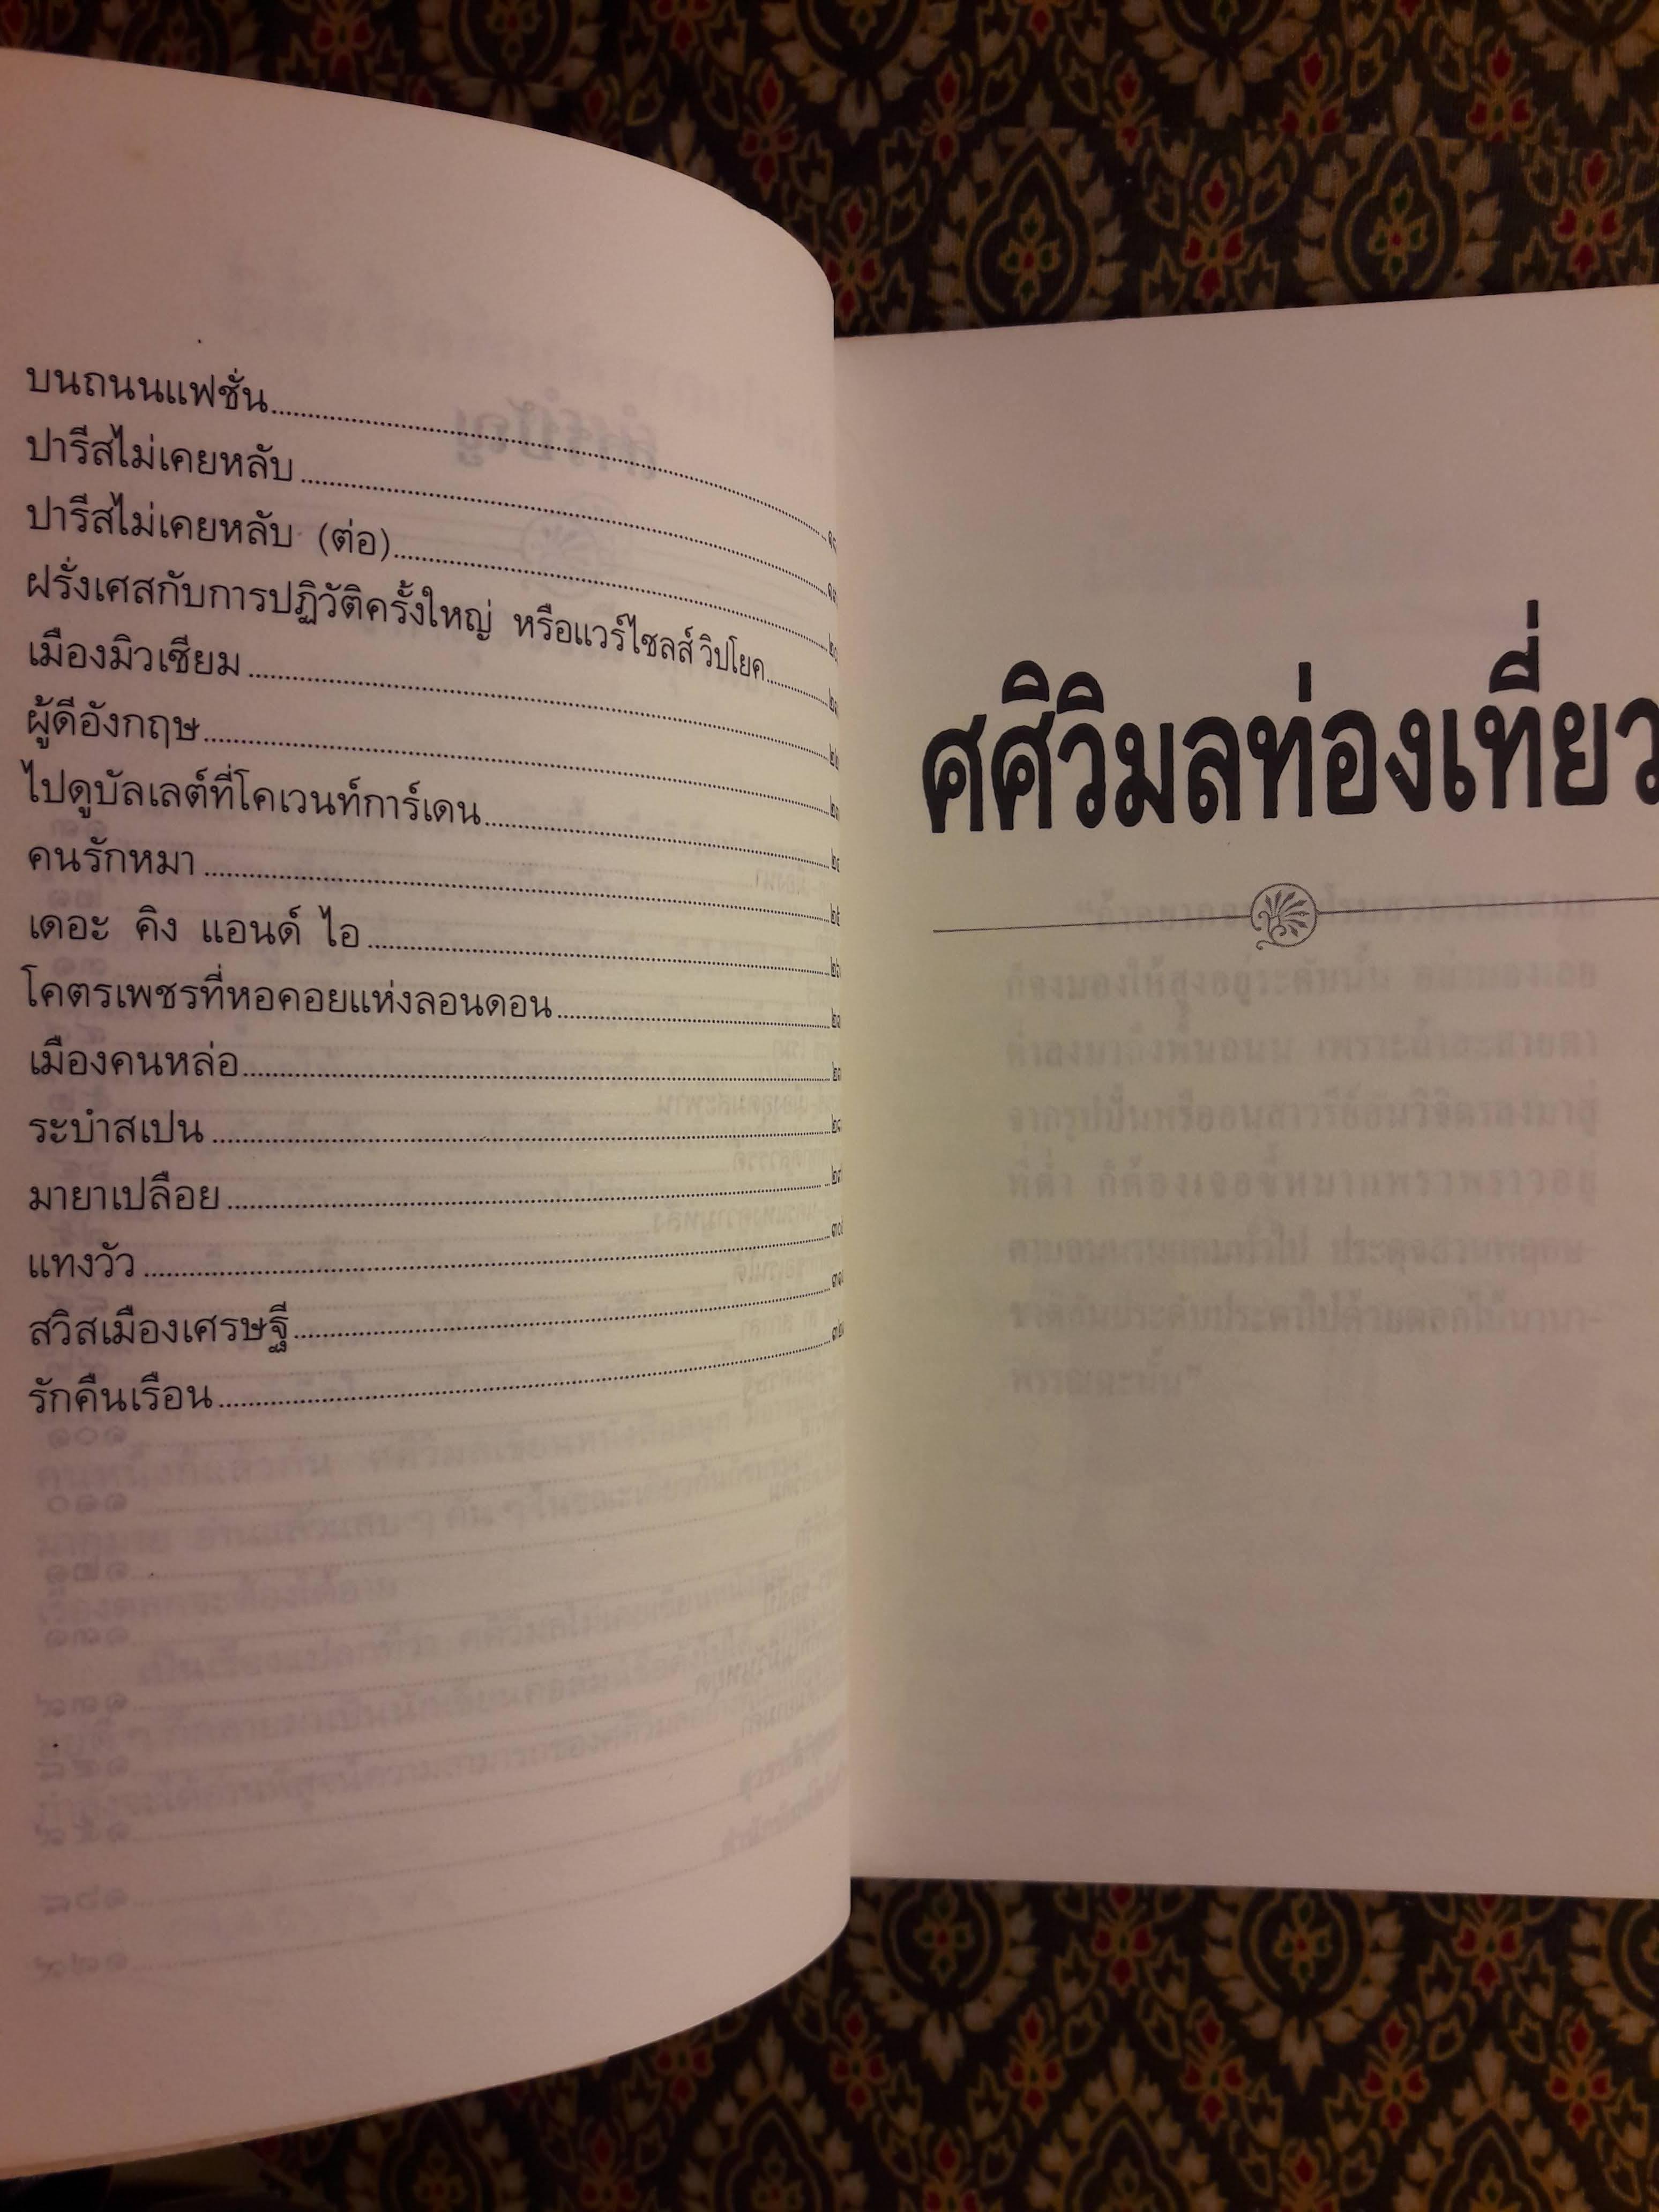 บนถนนแฟชั่น
ปารีสไม่เคยหลับ
ปารีสไม่เคยหลับ (ต่อ)
ฝรั่งเศสกับการปฏิวัติครั้งใหญ่ หรือแวร์ไซลส์วิปโยค
เมืองมิวเซียม
ผู้ดีอังกฤษ
ไปดูบัลเลต์ที่โคเวนท์การ์เดน
คนรักหมา
เดอะ คิง แอนด์ ไอ
โคตรเพชรที่หอคอยแห่งลอนดอน
เมืองคนหล่อ
ระบำสเปน
มายาเปลือย
แทงวัว
สวิสเมืองเศรษฐี
รักคืนเรือน
ศศิวิมลท่องเที่ยว